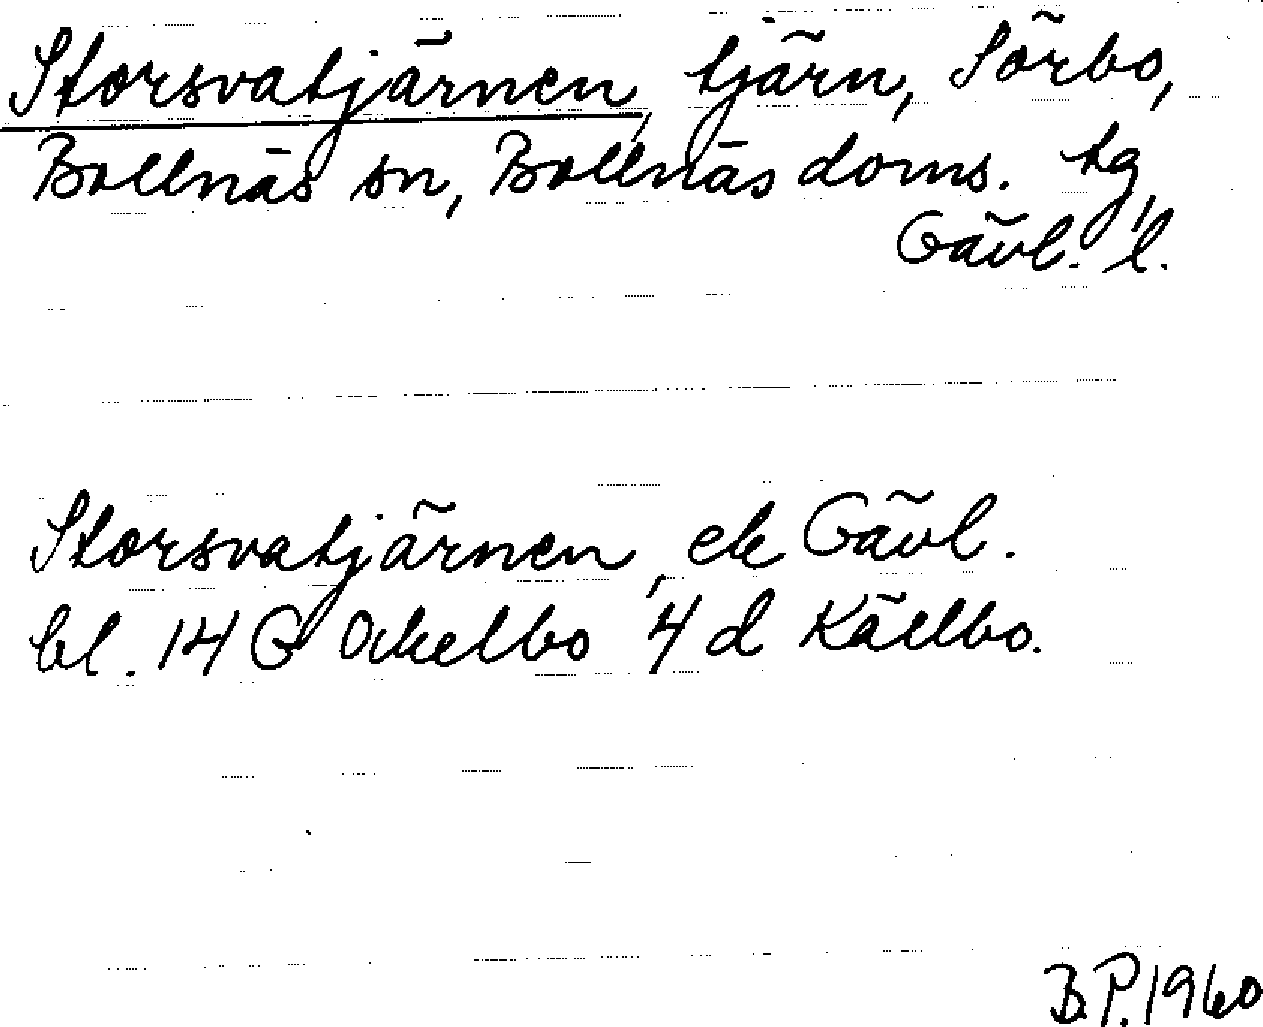 Storsvatjärnen, tjärn, Sörbo,
Bollnäs sn, Bollnäs doms. tg,
Gävl. l.
Storsvatjärnen, ek Gävl.
bl. 14 G Ockelbo 4 d Källbo.
B.P. 1960